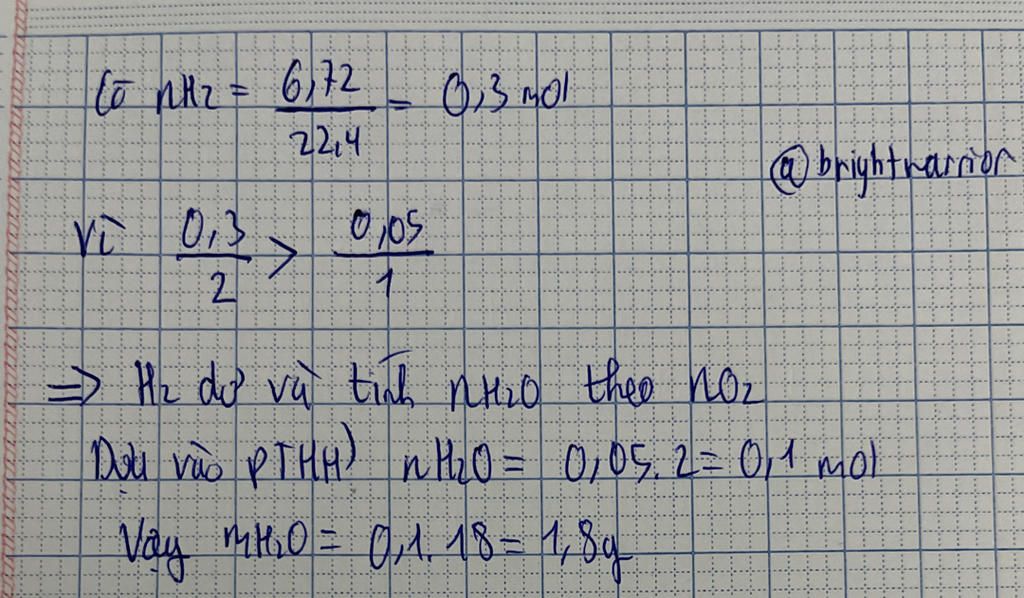 Có nH2 = 6,72 / 22,4 = 0,3 mol
@brightwarrior
Vì 0,3 / 2 > 0,05 / 1
=> H2 dư và tính nH2O theo nO2
Dựa vào PTHH) nH2O = 0,05.2 = 0,1 mol
Vậy mH2O = 0,1.18 = 1,8g